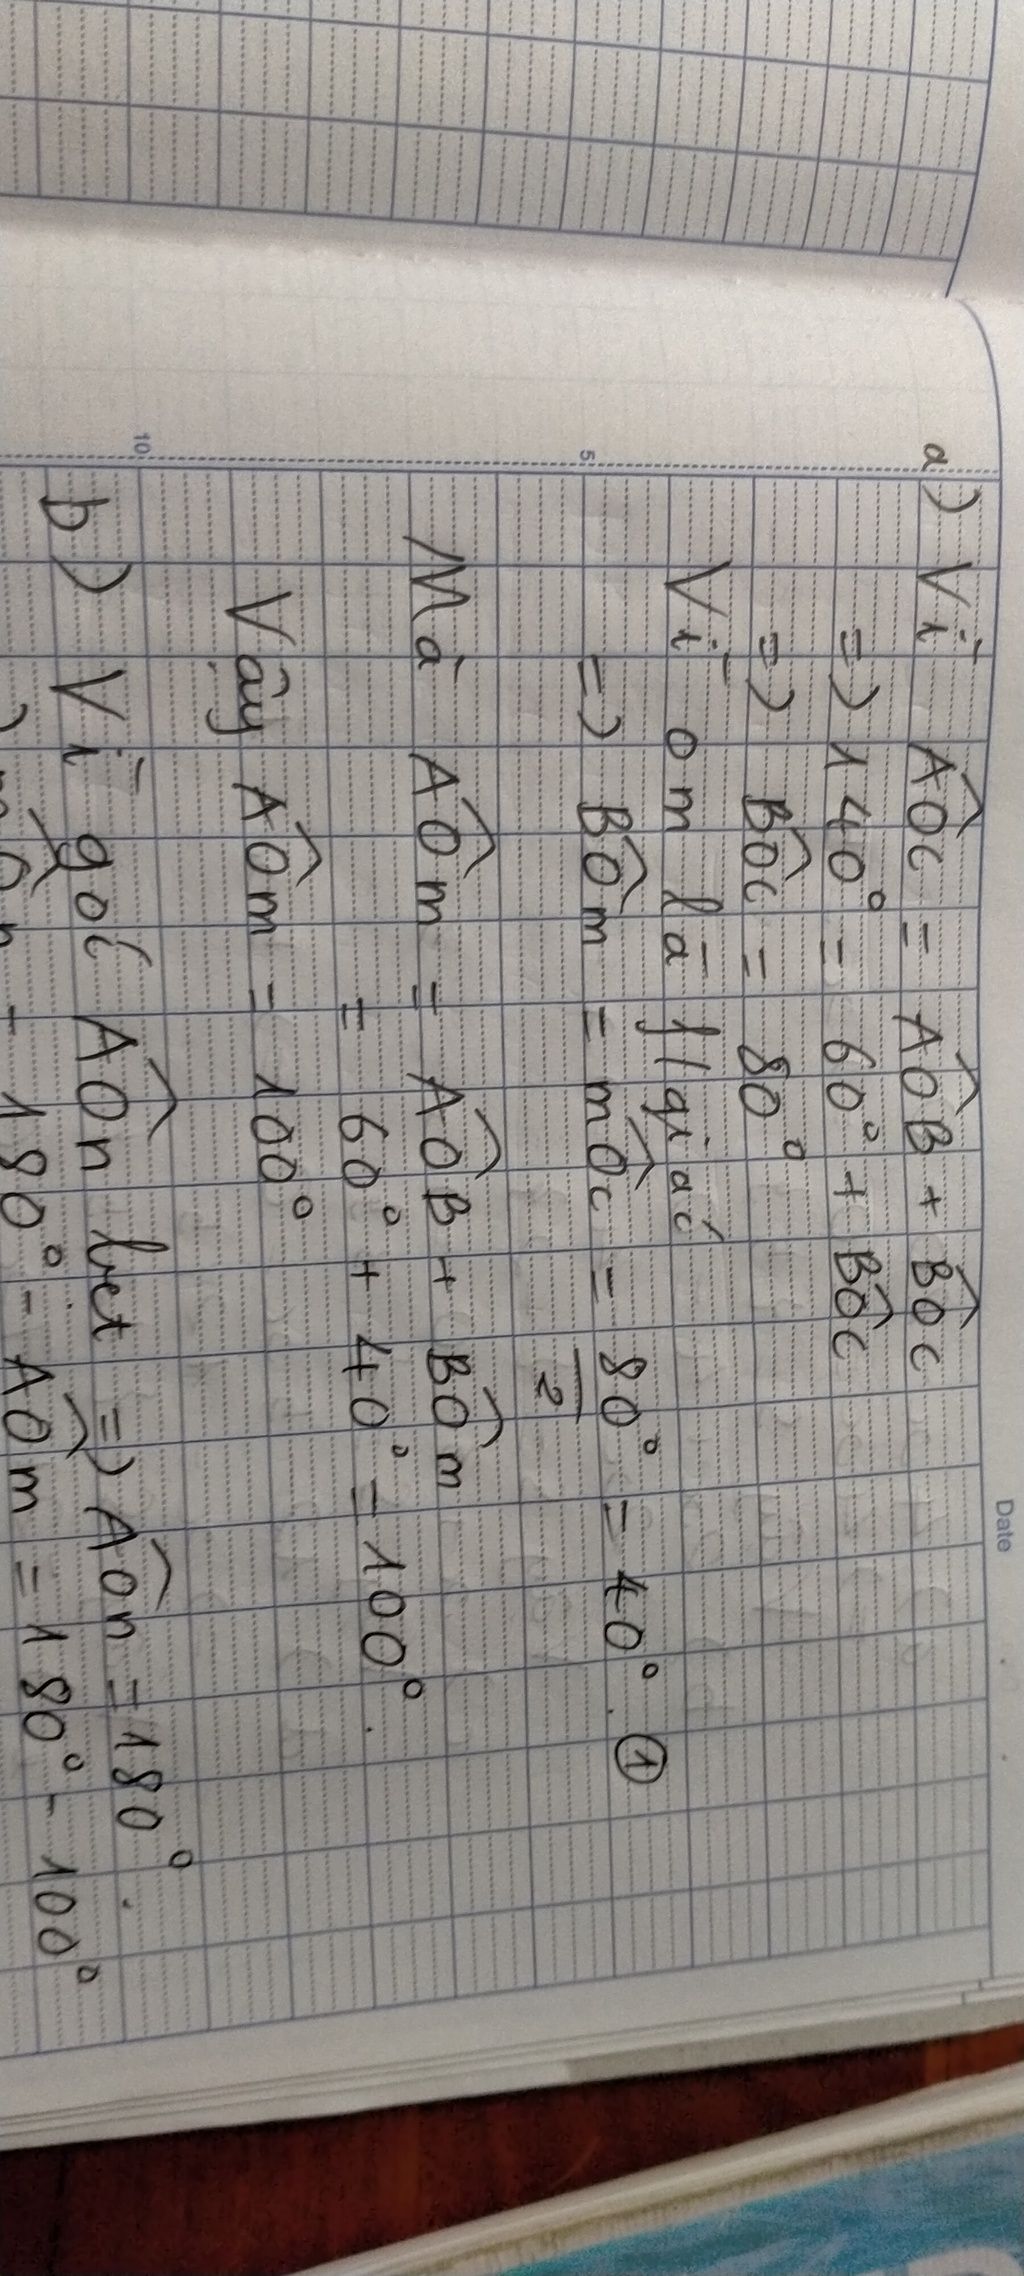 Date
a) Vì AÔC = AÔB + BÔC
=> 140° = 60° + BÔC
=> BÔC = 80°
Vì om là
5 => BÔm = mÔC = 80°/2 = 40°. ①
Mà AÔm = AÔB + BÔm
= 60° + 40° = 100°.
Vậy AÔm = 100°
10
b) Vì góc AÔn bẹt => AÔn = 180°.
180° - AÔm = 180° - 100°